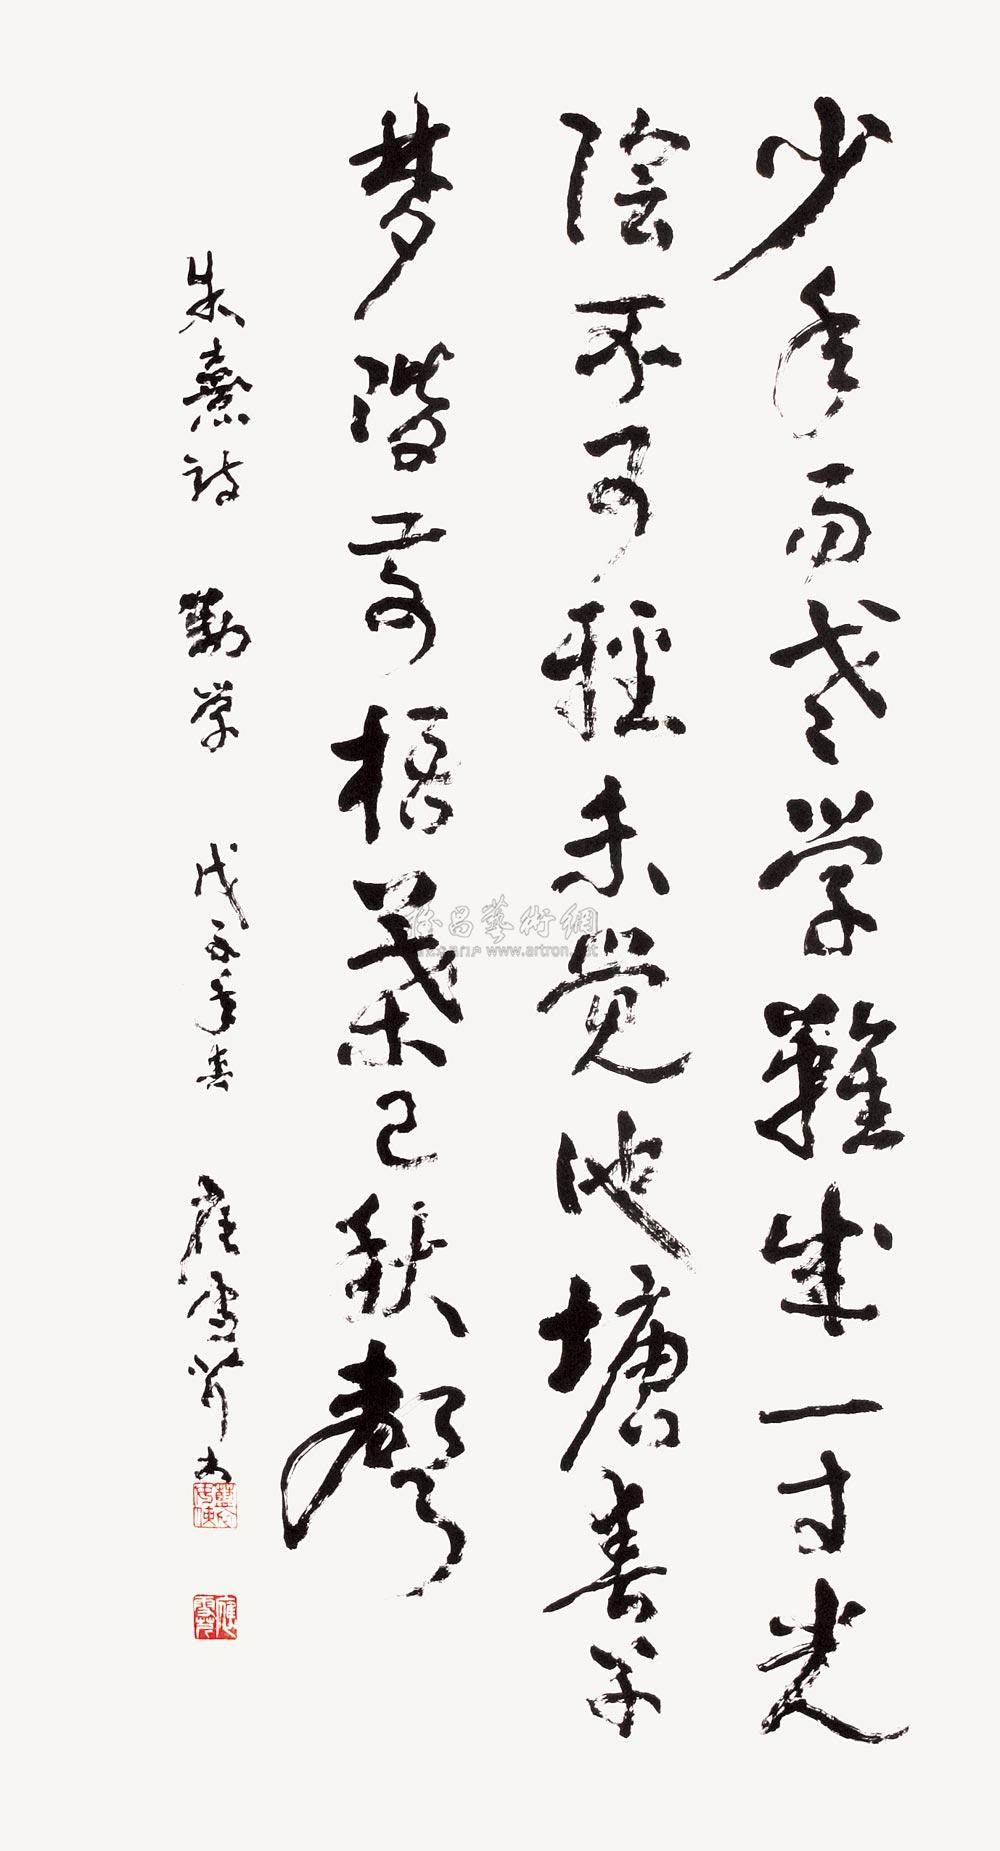 少年易老学難成一寸光
陰不可輕未觉池塘春草
梦階前梧葉已秋聲
朱熹诗 勸学 戊子年春 應雪芹书
應雪芹
雅昌藝術網
www.artron.net